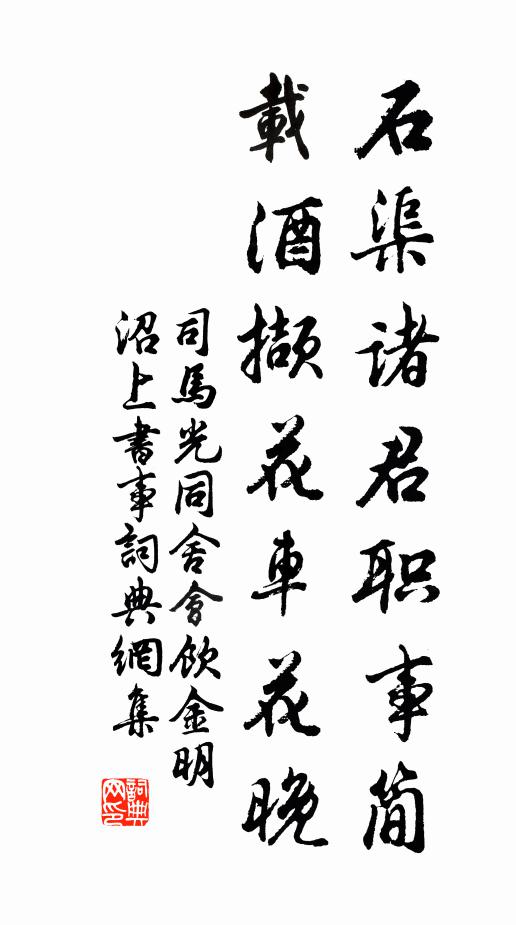 石渠诸君职事简
載酒擷花車花晚
司馬光同舍會飲金明
沼上書事詞典網集
詞典網印